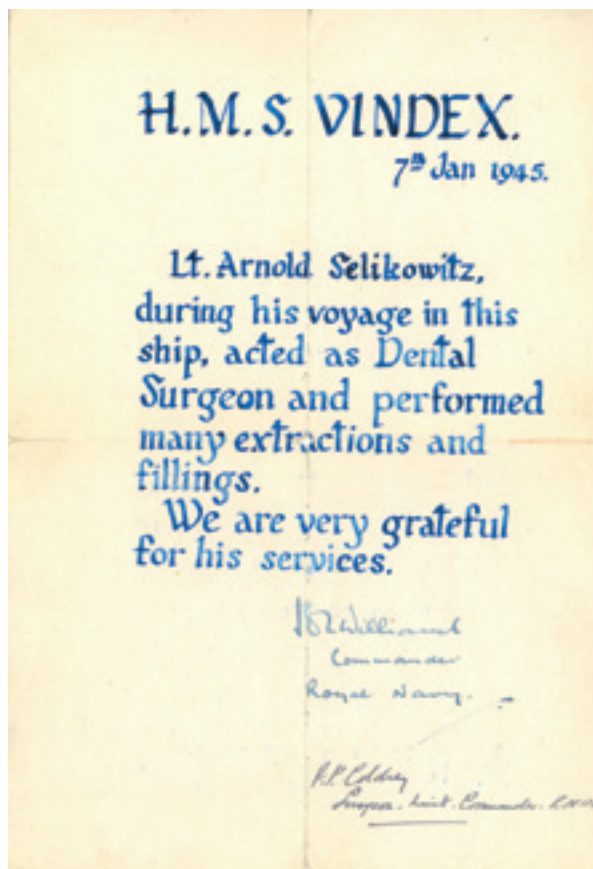 H.M.S. VINDEX.
7th Jan 1945.
Lt. Arnold Selikowitz,
during his voyage in this
ship, acted as Dental
Surgeon and performed
many extractions and
fillings.
We are very grateful
for his services.
Williams
Commander
Royal Navy.
Surgeon. Lieut. Commander.